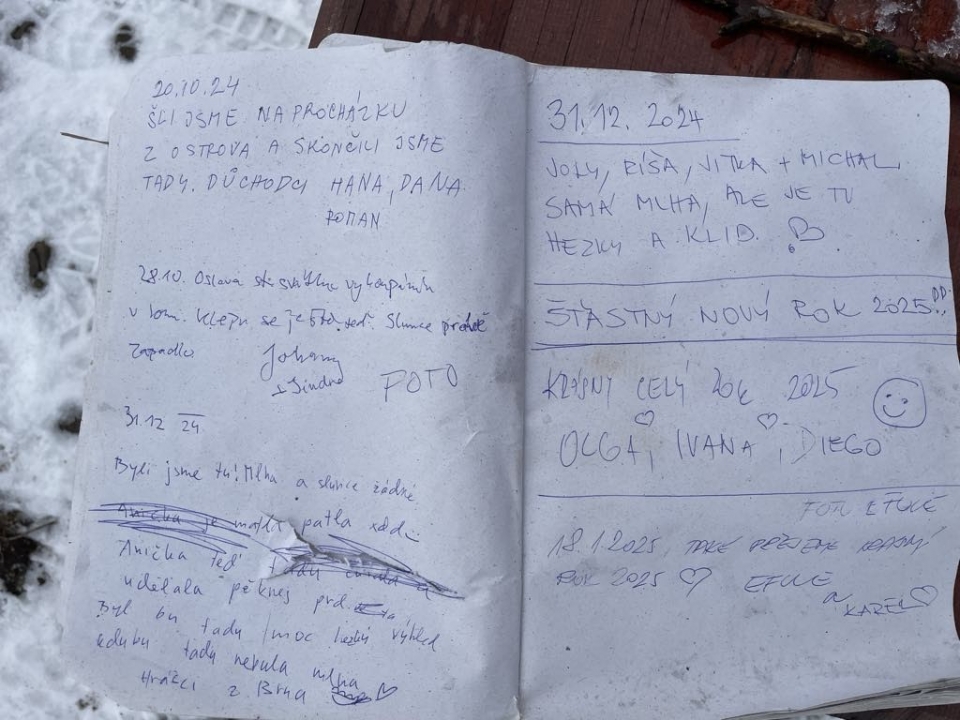 20.10.24
ŠLI JSME NA PROCHÁZKU
Z OSTROVA A SKONČILI JSME
TADY. DŮCHODCI HANA, DANA
ROMAN
28.10. Oslava
v lom. se je Slunce
Zapadlo
Johany
Jindra
FOTO
31.12 24
Byli jsme tu! Mlha a slunce žádné
Anička je
Anička teď tady
udělala pěknej prd.
Byl by tady moc hezký výhled
kdyby tady nebyla mlha
Hráčci z Brna ♡
31.12. 2024
RÍŠA, VITKA + MICHAL
SAMÁ MLHA, ALE JE TU
HEZKY A KLID.
ŠŤASTNÝ NOVÝ ROK 2025
KRÁSNÝ CELÝ ROK 2025
OLGA, IVANA, DIEGO
18.1.2025 TAKÉ PŘEJEME KRÁSNÝ
ROK 2025 ♡
A KAREL ♡